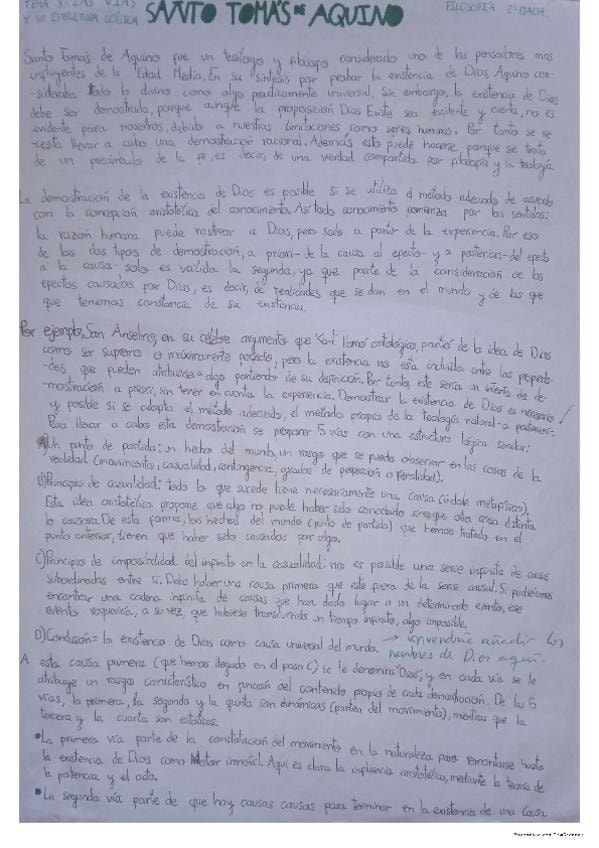 TEMA 3: LAS VÍAS
Y SU ESTRUCTURA LÓGICA
SANTO TOMÁS DE AQUINO
FILOSOFÍA 2º BACH.
Santo Tomás de Aquino fue un teólogo y filósofo considerado uno de los pensadores mas
influyentes de la Edad Media. En su síntesis por probar la existencia de Dios, Aquino con-
-sideraba todo lo divino como algo prácticamente universal. Sin embargo, la existencia de Dios
debe ser demostrada, porque aunque la proposición Dios Existe sea evidente y cierta, no es
evidente para nosotros, debido a nuestras limitaciones como seres humanos. Por tanto se ne-
-cesita llevar a cabo una demostración racional. Además esto puede hacerse, porque se trata
de un preámbulo de la fe, es decir, de una verdad compartida por filosofía y la teología.
La demostración de la existencia de Dios es posible si se utiliza el método adecuado de acuerdo
con la concepción aristotélica del conocimiento. Así, todo conocimiento comienza por los sentidos:
la razón humana puede rastrear a Dios, pero solo a partir de la experiencia. Por eso
de los dos tipos de demostración, a priori- de la causa al efecto- y a posteriori- del efecto
a la causa- solo es valida la segunda, ya que parte de la consideración de los
efectos causados por Dios, es decir, de realidades que se dan en el mundo y de las que
que tenemos constancia de su existencia.
Por ejemplo, San Anselmo, en su célebre argumento que Kant llamó ontológico, partía de la idea de Dios
como ser supremo o máximamente perfecto, pero la existencia no esta incluida entre las propieda-
-des que pueden atribuirse a algo partiendo de su definición. Por tanto, este sería un intento de de-
-mostración a priori, sin tener en cuenta la experiencia. Demostrar la existencia de Dios es necesario
y posible si se adopta el método adecuado, el método propio de la teología natural- a posteriori-.
Para llevar a cabo esta demostración se proponen 5 vías con una estructura lógica similar:
A) Un punto de partida: un hecho del mundo, un rasgo que se puede observar en las cosas de la
realidad (movimiento, causalidad, contingencia, grados de perfección o finalidad).
b) Principio de causalidad: todo lo que sucede tiene necesariamente una causa (índole metafísica).
Esta idea aristotélica propone que algo no puede haber sido concebido sino que otra cosa distinta
lo causara. De esta forma, los hechos del mundo (punto de partida) que hemos tratado en el
punto anterior, tienen que haber sido causados por algo.
C) Principio de imposibilidad del infinito en la causalidad: no es posible una serie infinita de causas
subordinadas entre si. Debe haber una causa primera que este fuera de la serie causal. Si pudiésemos
encontrar una cadena infinita de causas que han dado lugar a un determinado evento, ese
evento requeriría, a su vez, que hubiese transcurrido un tiempo infinito, algo imposible.
D) Conclusión = la existencia de Dios como causa universal del mundo.
→ convendría añadir los
nombres de Dios aquí.
A esta causa primera (que hemos llegado en el paso C) se le denomina "Dios", y en cada vía se le
atribuye un rasgo característico en función del contenido propio de cada demostración. De las 5
vías, la primera, la segunda y la quinta son dinámicas (parten del movimiento), mientras que la
tercera y la cuarta son estáticas.
•La primera vía parte de la constatación del movimiento en la naturaleza para remontarse hasta
la existencia de Dios como Motor inmóvil. Aquí es clara la influencia aristotélica, mediante la teoría de
la potencia y el acto.
•La segunda vía parte de que hay causas causas para terminar en la existencia de una Causa